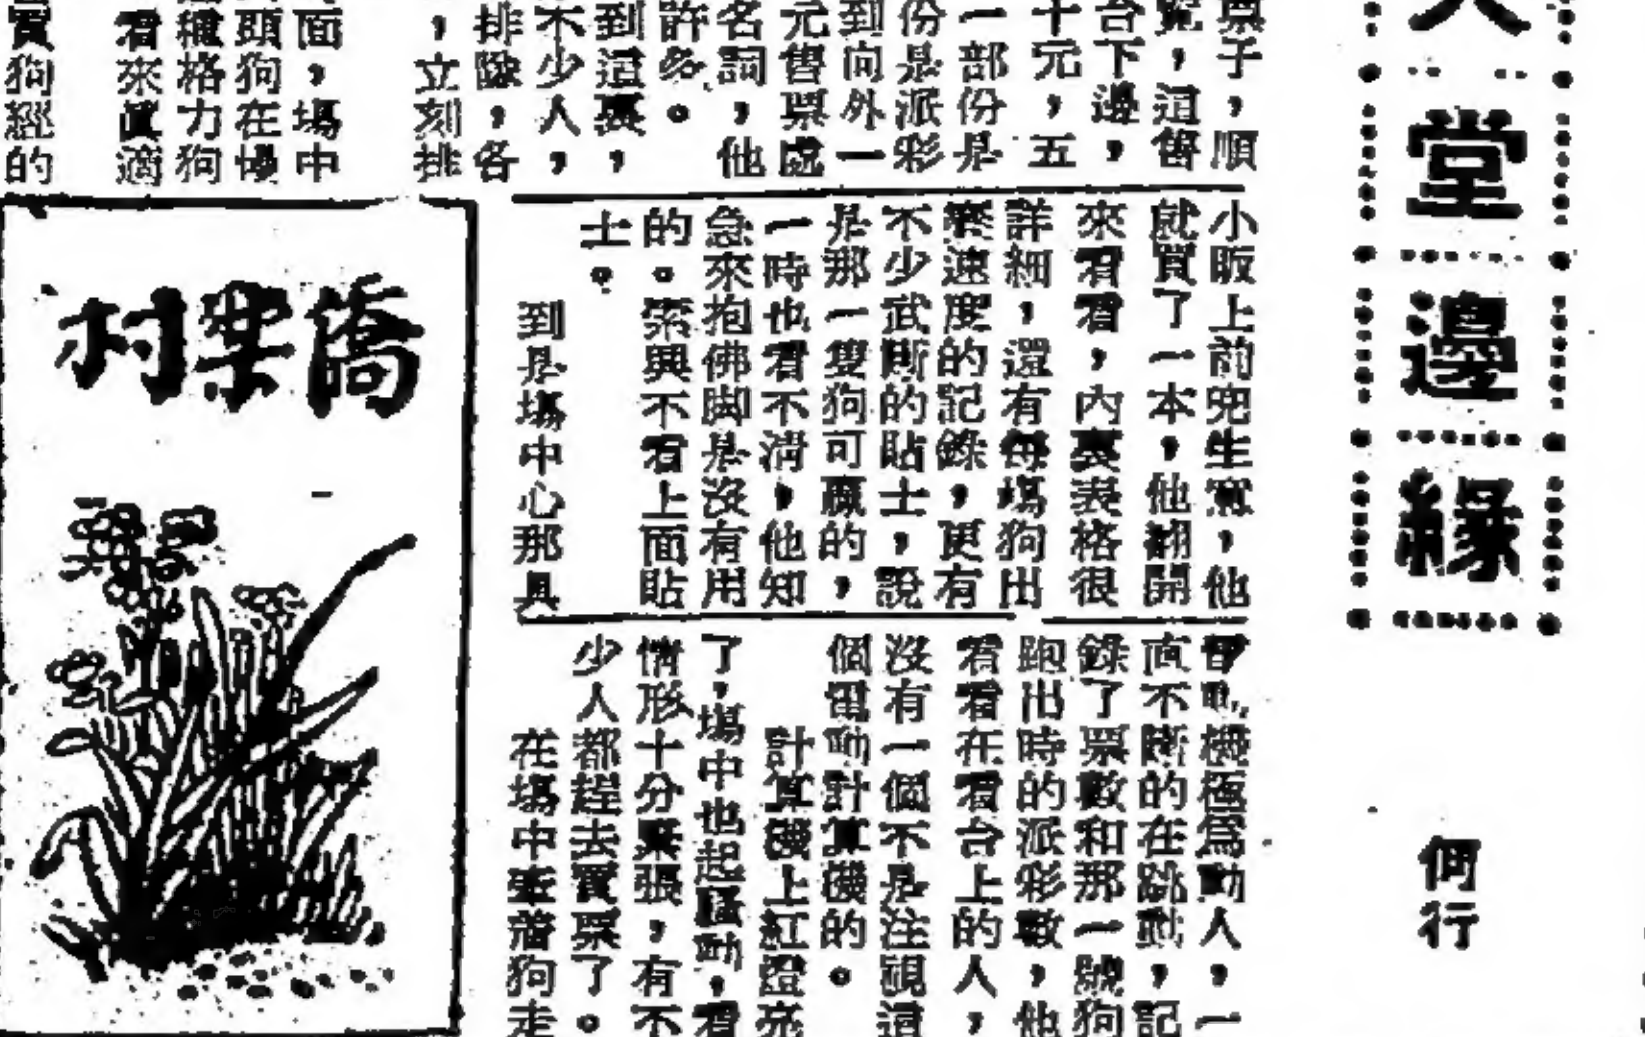 堂邊緣
何行
票子，順
覽，這售
台下邊，
十元，五
一部份是
份是派彩
到向外一
元售票處
名詞，他
許多。
到這裏，
不少人，
排隊，各
，立刻排
面，場中
頭狗在場
種格力狗
看來真滴
買狗經的
小販上前兜生意，他
就買了一本，他翻開
來看看，內裏表格很
詳細，還有每場狗出
賽速度的記錄，更有
不少武斷的貼士，說
是那一隻狗可贏的，
一時也看不清，他知
急來抱佛脚是沒有用
的。索興不看上面貼
士。
到是場中心那具
動機極爲動人，一
直不斷的在跳動，記
錄了票數和那一號狗
跑出時的派彩數，他
看看在看台上的人，
沒有一個不是注視這
個電動計算機的。
計算機上紅燈亮
了，場中也起騷動，看
情形十分緊張，有不
少人都趕去買票了。
在場中牽着狗走
僑樂村